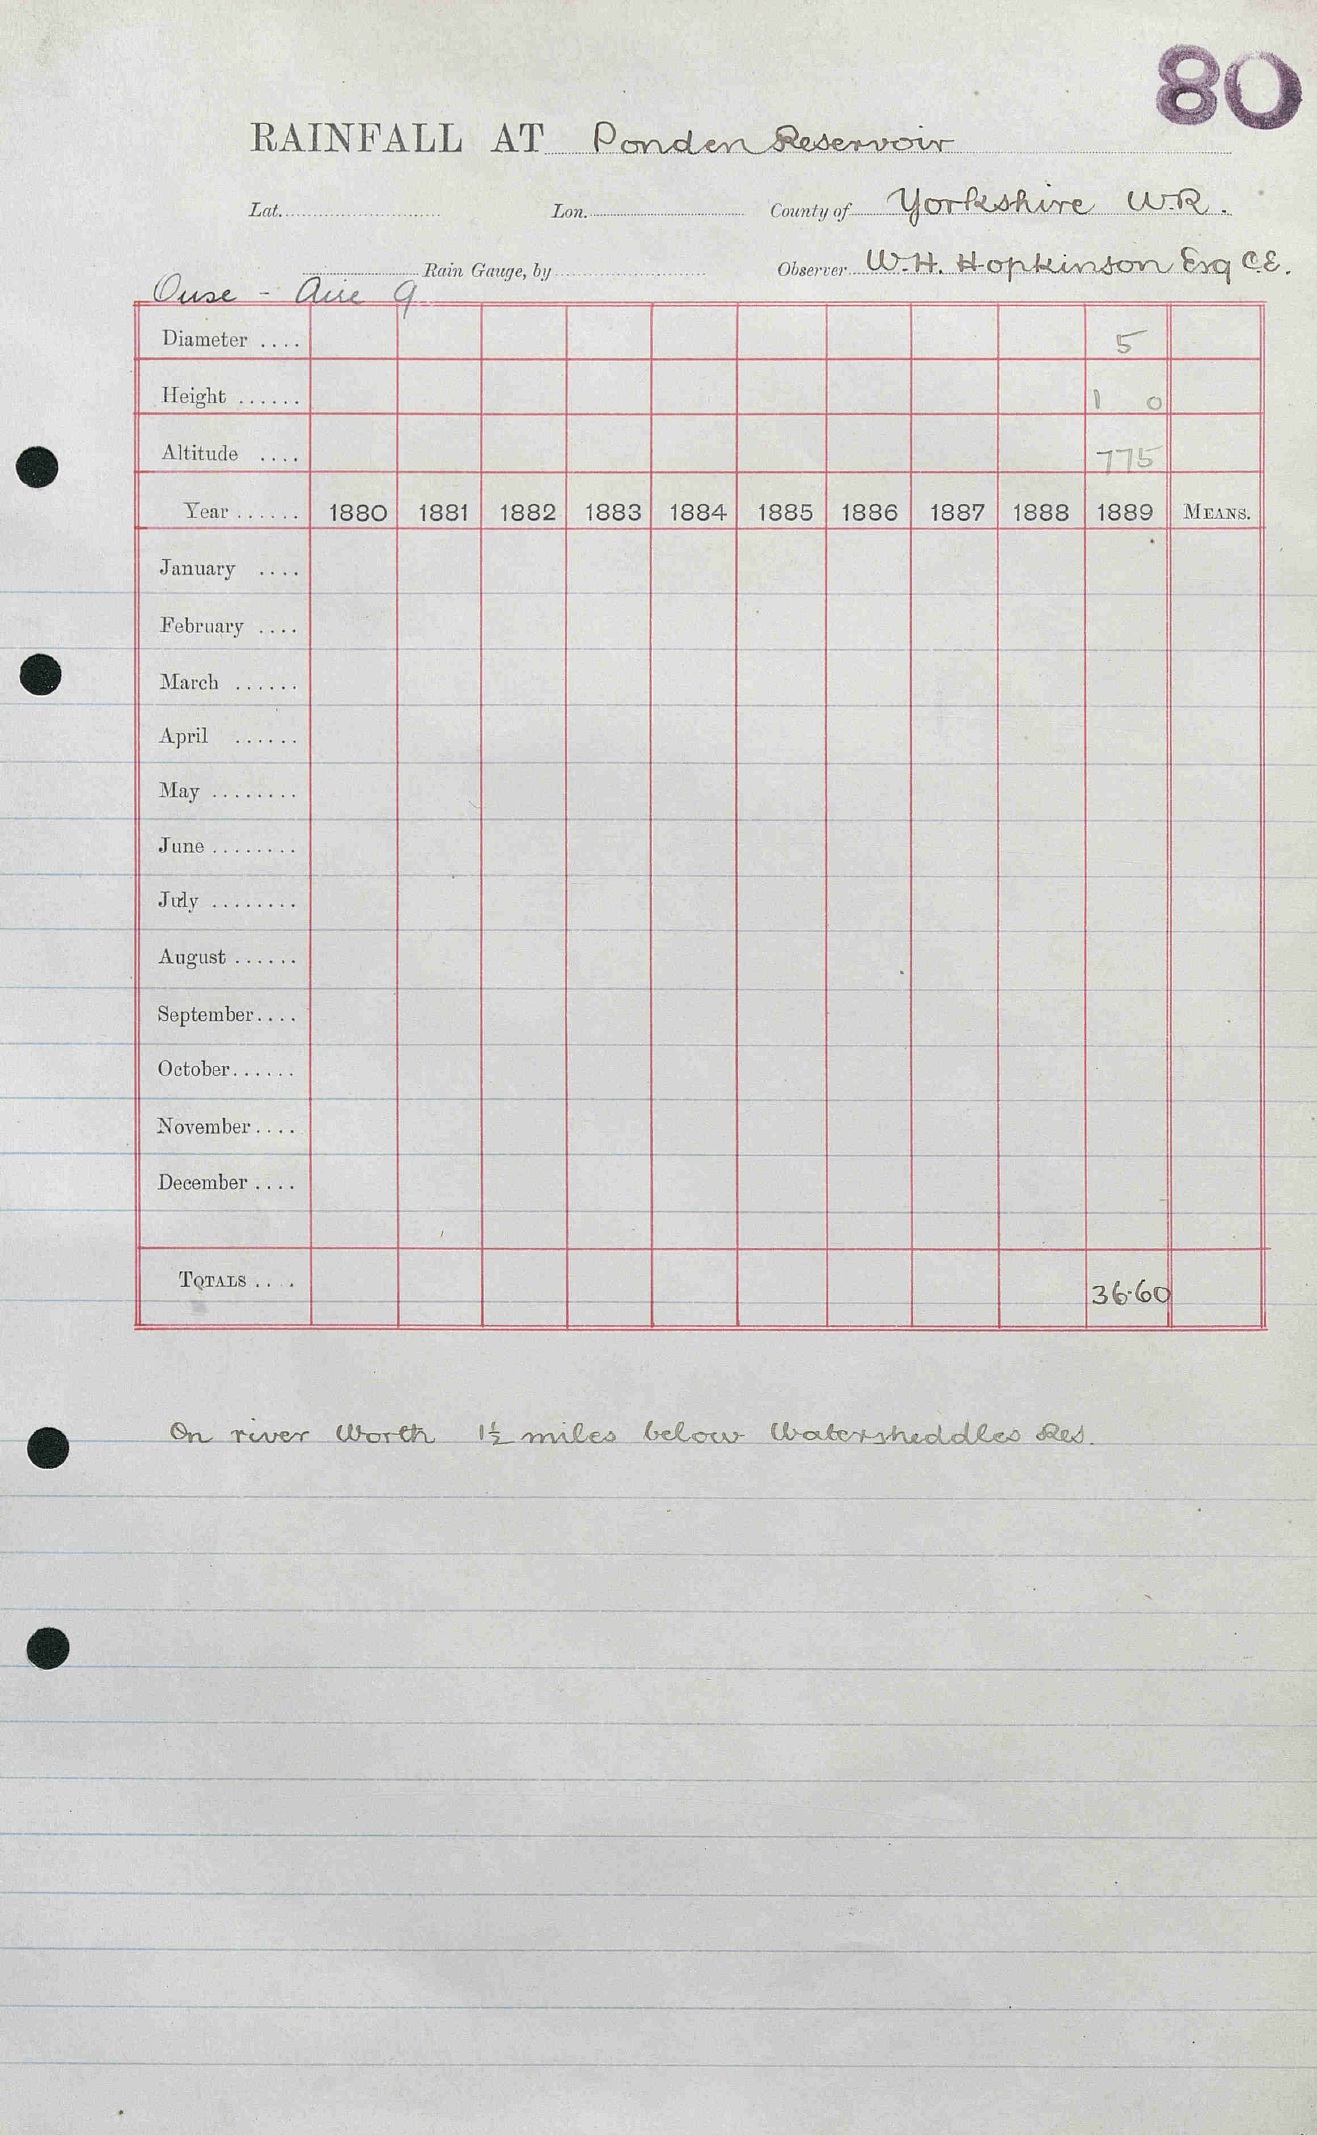 80
RAINFALL AT Ponden Reservoir
Lat. Lon. County of Yorkshire W.R.
Rain Gauge, by Observer W. H. Hopkinson Esq C.E.
Ouse - Aire 9
Diameter .... 5
Height ...... 1 0
Altitude .... 775
Year ...... 1880 1881 1882 1883 1884 1885 1886 1887 1888 1889 MEANS.
January ....
February ....
March ......
April ......
May ........
June ........
July ........
August ......
September....
October......
November....
December ....
TOTALS .... 36.60
On river Worth 1½ miles below Watersheddles Res.